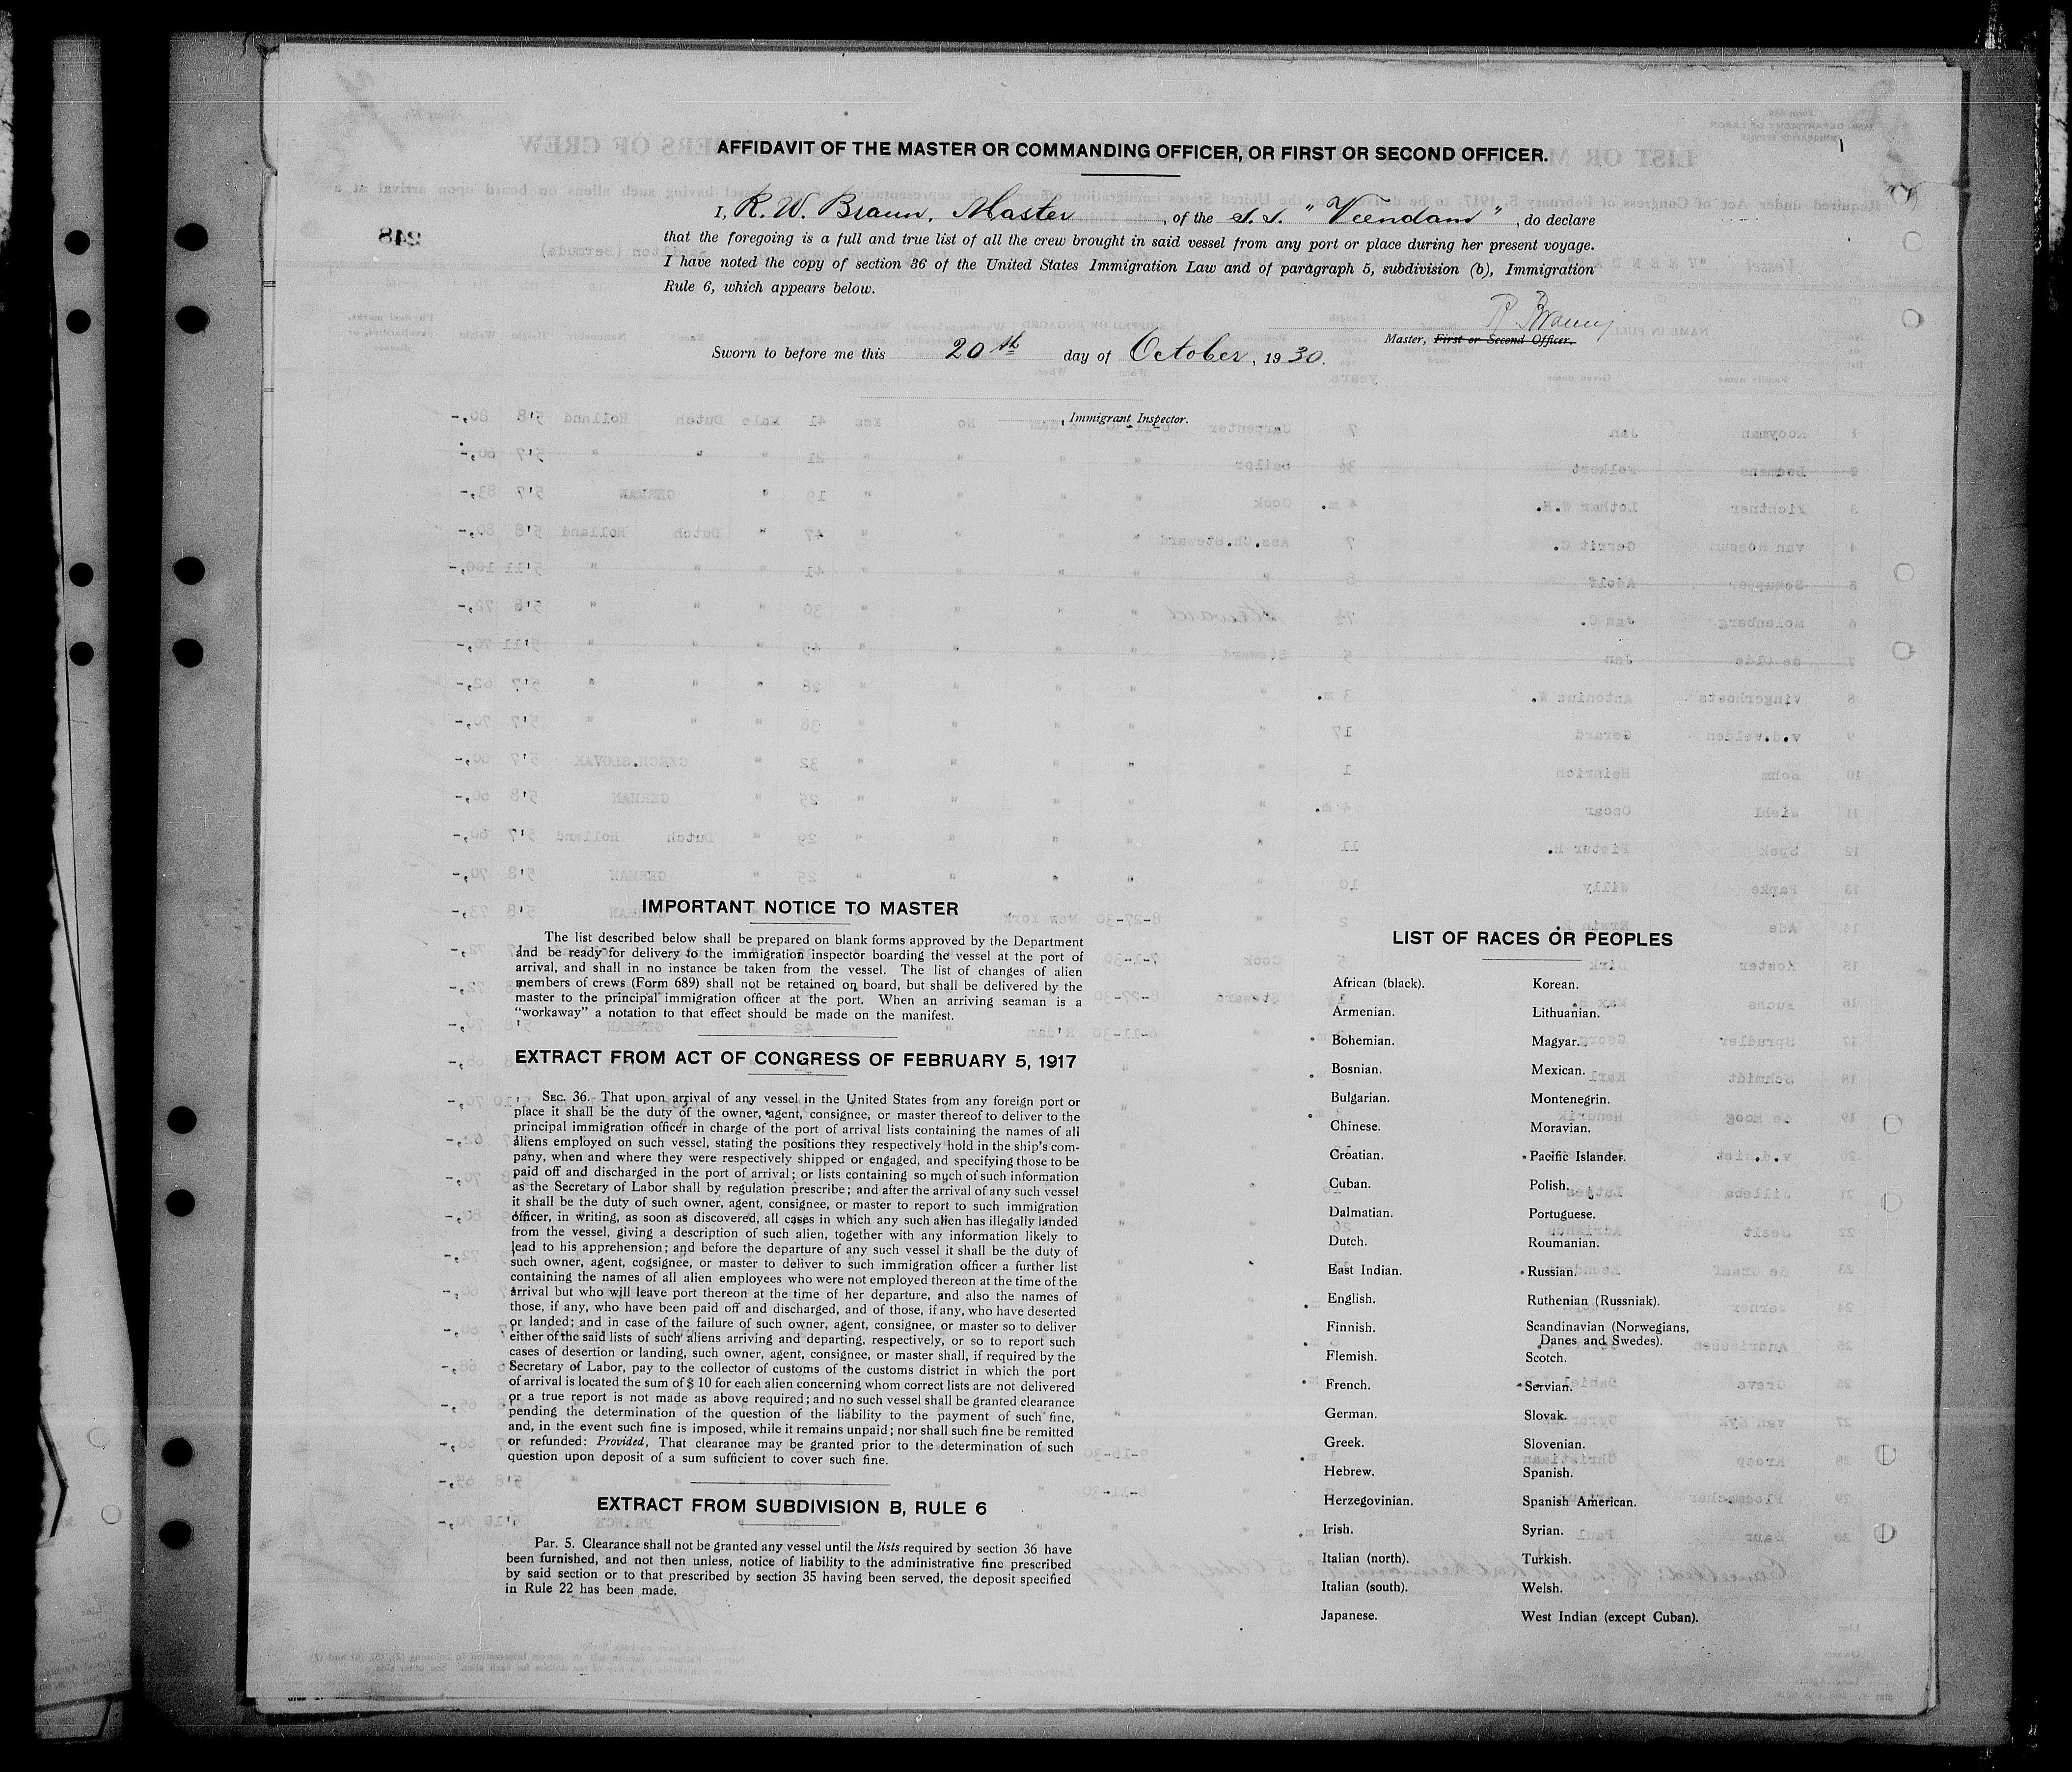 AFFIDAVIT OF THE MASTER OR COMMANDING OFFICER, OR FIRST OR SECOND OFFICER.
I, R. W. Braun, Master, of the S.S. "Veendam", do declare
that the foregoing is a full and true list of all the crew brought in said vessel from any port or place during her present voyage.
I have noted the copy of section 36 of the United States Immigration Law and of paragraph 5, subdivision (b), Immigration
Rule 6, which appears below.
Master, First or Second Officer.
Sworn to before me this 20th day of October, 1930.
, Immigrant Inspector.
248
IMPORTANT NOTICE TO MASTER
The list described below shall be prepared on blank forms approved by the Department
and be ready for delivery to the immigration inspector boarding the vessel at the port of
arrival, and shall in no instance be taken from the vessel. The list of changes of alien
members of crews (Form 689) shall not be retained on board, but shall be delivered by the
master to the principal immigration officer at the port. When an arriving seaman is a
"workaway" a notation to that effect should be made on the manifest.
EXTRACT FROM ACT OF CONGRESS OF FEBRUARY 5, 1917
SEC. 36. That upon arrival of any vessel in the United States from any foreign port or
place it shall be the duty of the owner, agent, consignee, or master thereof to deliver to the
principal immigration officer in charge of the port of arrival lists containing the names of all
aliens employed on such vessel, stating the positions they respectively hold in the ship's com-
pany, when and where they were respectively shipped or engaged, and specifying those to be
paid off and discharged in the port of arrival; or lists containing so much of such information
as the Secretary of Labor shall by regulation prescribe; and after the arrival of any such vessel
it shall be the duty of such owner, agent, consignee, or master to report to such immigration
officer, in writing, as soon as discovered, all cases in which any such alien has illegally landed
from the vessel, giving a description of such alien, together with any information likely to
lead to his apprehension; and before the departure of any such vessel it shall be the duty of
such owner, agent, cogsignee, or master to deliver to such immigration officer a further list
containing the names of all alien employees who were not employed thereon at the time of the
arrival but who will leave port thereon at the time of her departure, and also the names of
those, if any, who have been paid off and discharged, and of those, if any, who have deserted
or landed; and in case of the failure of such owner, agent, consignee, or master so to deliver
either of the said lists of such aliens arriving and departing, respectively, or so to report such
cases of desertion or landing, such owner, agent, consignee, or master shall, if required by the
Secretary of Labor, pay to the collector of customs of the customs district in which the port
of arrival is located the sum of $ 10 for each alien concerning whom correct lists are not delivered
or a true report is not made as above required; and no such vessel shall be granted clearance
pending the determination of the question of the liability to the payment of such fine,
and, in the event such fine is imposed, while it remains unpaid; nor shall such fine be remitted
or refunded: Provided, That clearance may be granted prior to the determination of such
question upon deposit of a sum sufficient to cover such fine.
EXTRACT FROM SUBDIVISION B, RULE 6
Par. 5. Clearance shall not be granted any vessel until the lists required by section 36 have
been furnished, and not then unless, notice of liability to the administrative fine prescribed
by said section or to that prescribed by section 35 having been served, the deposit specified
in Rule 22 has been made.
LIST OF RACES OR PEOPLES
African (black).
Armenian.
Bohemian.
Bosnian.
Bulgarian.
Chinese.
Croatian.
Cuban.
Dalmatian.
Dutch.
East Indian.
English.
Finnish.
Flemish.
French.
German.
Greek.
Hebrew.
Herzegovinian.
Irish.
Italian (north).
Italian (south).
Japanese.
Korean.
Lithuanian.
Magyar.
Mexican.
Montenegrin.
Moravian.
Pacific Islander.
Polish.
Portuguese.
Roumanian.
Russian.
Ruthenian (Russniak).
Scandinavian (Norwegians,
Danes and Swedes).
Scotch.
Servian.
Slovak.
Slovenian.
Spanish.
Spanish American.
Syrian.
Turkish.
Welsh.
West Indian (except Cuban).